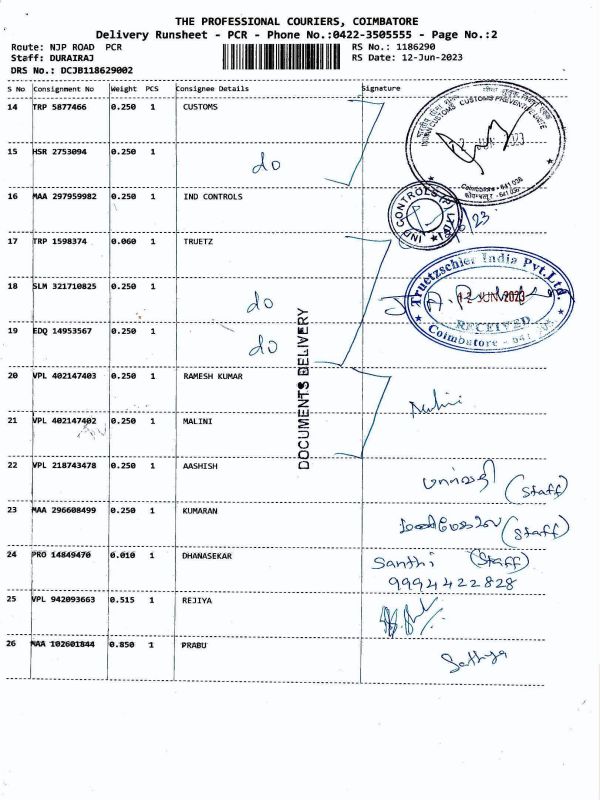 THE PROFESSIONAL COURIERS, COIMBATORE
Delivery Runsheet - PCR - Phone No.:0422-3505555 - Page No.:2
Route: NJP ROAD PCR
RS No.: 1186290
Staff: DURAIRAJ
RS Date: 12-Jun-2023
DRS No.: DCJB118629002
S No Consignment No Weight PCS Consignee Details Signature
14 TRP 5877466 0.250 1 CUSTOMS
INDIAN CUSTOMS CUSTOMS PREVENTIVE UNIT
JUN 2023
Coimbatore - 641 018
15 HSR 2753094 0.250 1 do
16 MAA 297959982 0.250 1 IND CONTROLS
IND CONTROLS (P) LTD
17 TRP 1598374 0.060 1 TRUETZ
Truetzschler India Pvt.Ltd.
12 JUN 2023
RECEIVED
Coimbatore - 641
18 SLM 321710825 0.250 1 do
19 EDQ 14953567 0.250 1 do
DOCUMENTS DELIVERY
20 VPL 402147403 0.250 1 RAMESH KUMAR
Malini
21 VPL 402147402 0.250 1 MALINI
22 VPL 218743478 0.250 1 AASHISH
(Staff)
23 MAA 296608499 0.250 1 KUMARAN
(Staff)
24 PRO 14849470 0.010 1 DHANASEKAR
Santhi (Staff)
9994422828
25 VPL 942093663 0.515 1 REJIYA
26 MAA 102601844 0.850 1 PRABU
Sathya